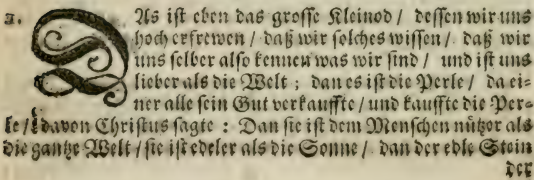 2. DAs ist eben das grosse Kleinod / dessen wir uns
hoch erfrewen / daß wir solches wissen / daß wir
uns selber also kennen was wir sind / und ist uns
lieber als die Welt ; dan es ist die Perle / da ei-
ner alle sein Gut verkauffte / und kauffte die Per-
le / davon Christus sagte : Dan sie ist dem Menschen nützor als
die gantze Welt / sie ist edeler als die Sonne / dan der edle Stein
der